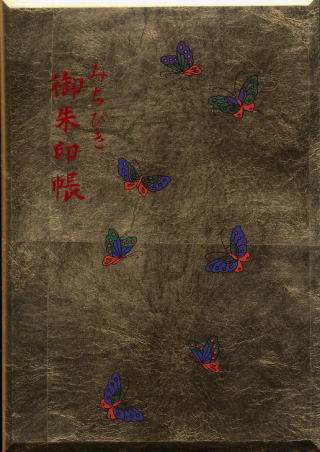 みちびき
御朱印帳